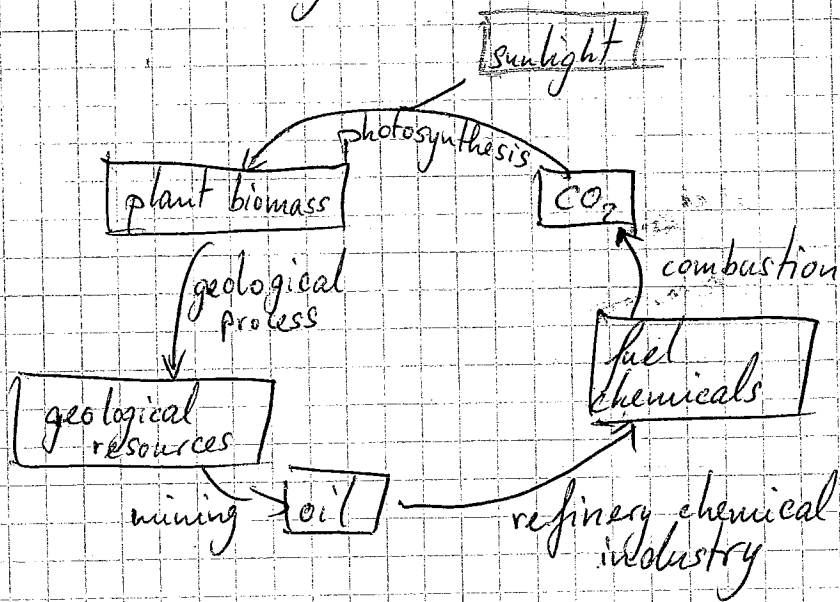 sunlight
photosynthesis
plant biomass
CO₂
geological
process
combustion
fuel
chemicals
geological
resources
mining
oil
refinery chemical
industry